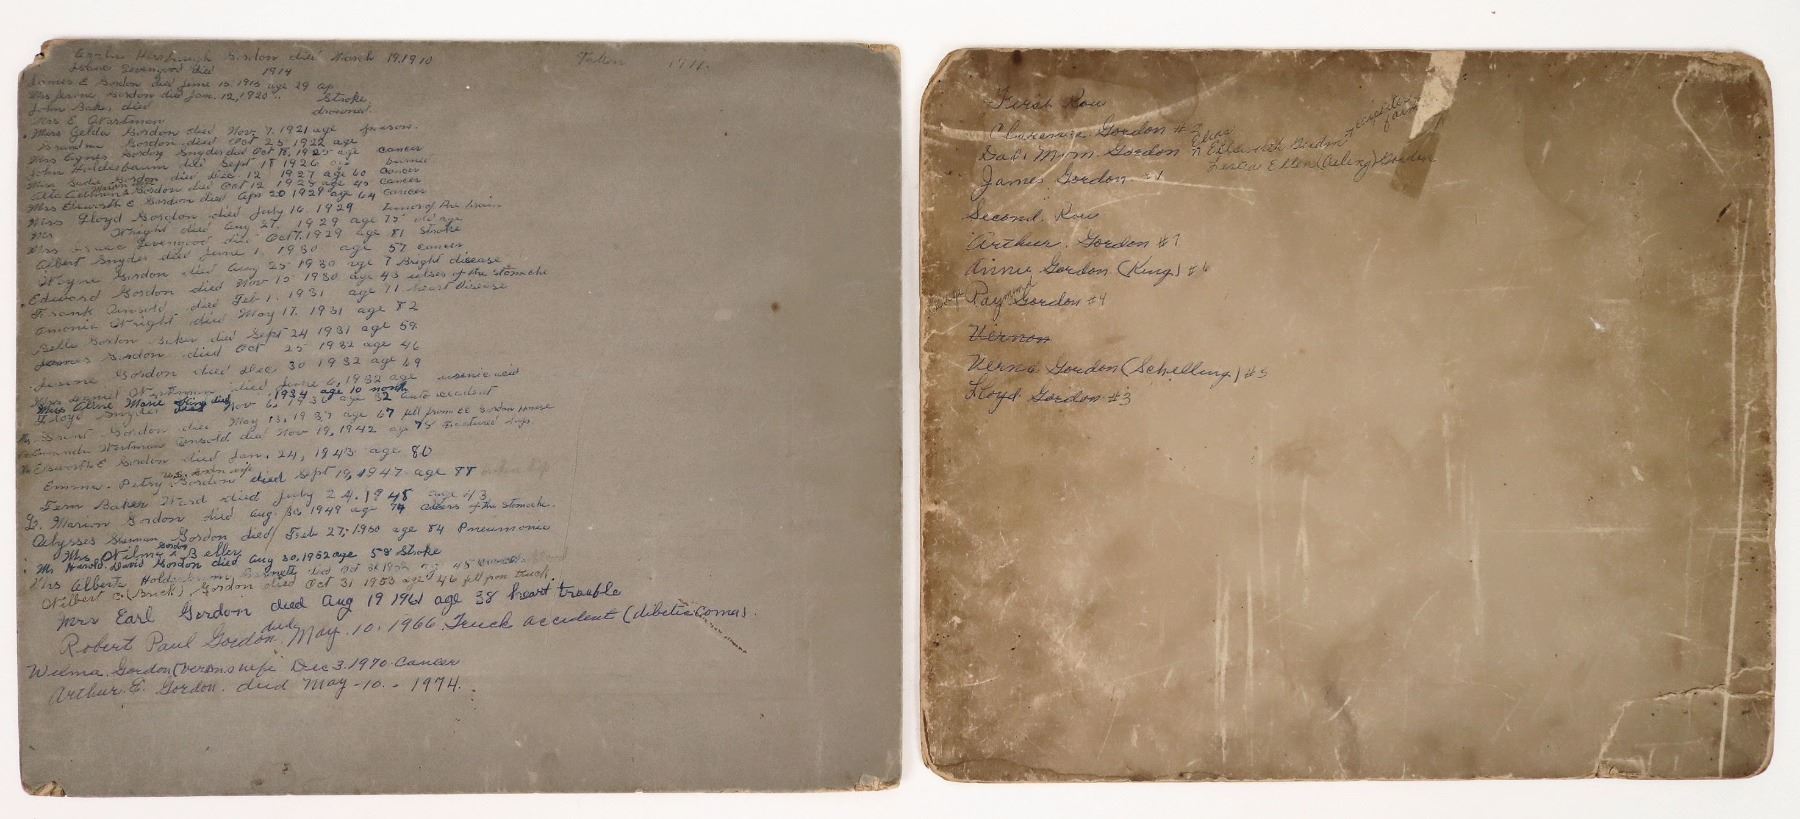 Gordon died March 19, 1910
Taken
died 1914
James E Gordon died June 15, 1915 age 29
Mrs Gordon died Jan. 12, 1920 Stroke
John Baker died drowned
Mrs E Wortman
Miss Zelda Gordon died Nov 7. 1921 age poison.
Gordon died Oct 25 1922 age
Mrs Agnes Gordon Snyder died Oct 18, 1925 age cancer
John Holderbaum died Sept 18 1926 age burned
Mrs Sadie Gordon died Dec 12 1927 age 60 cancer
Gordon died Oct 12 1928 age 45 cancer
Mrs Elsworth E Gordon died Apr 20 1929 age 64 cancer
Miss Floyd Gordon died July 16. 1929 Tumor of the brain
Mrs Wright died Aug 27. 1929 age 75 old age
Mrs Isaac Livengood died Oct 7. 1929 age 81 Stroke
Albert Snyder died June 1, 1930 age 57 cancer
Wayne Gordon died Aug 25 1930 age 7 Bright disease
Edward Gordon died Nov 15 1930 age 43 ulsers of the stomache
Frank Arnold died Feb 1. 1931 age 71 heart disease
Wright died May 17. 1931 age 82
Belle Gordon Baker died Sept 24 1931 age 59
James Gordon died Oct 25 1932 age 46
Gordon died Dec 30 1932 age 69
Mrs Daniel Wortman died June 6, 1932 age arsenic acid
Miss Aline Marie King died 1934 age 10 month
Floyd Snyder died Nov 6, age 32 auto accident
Grant Gordon died May 13, 1937 age 67 fell from EE Gordon House
Wortman Arnold died Nov 19, 1942 age 78 fractured hip
Elsworth E Gordon died Jan. 24, 1943 age 80
Emma Petry Gordon died Sept 19, 1947 age 88 broken hip
Fern Baker Ward died July 24. 1948 age 43
G. Marion Gordon died Aug 30 1949 age 74 ulcers of the stomache.
Ulysses Sherman Gordon died Feb 27, 1950 age 84 Pneumonia
Mrs Wilma Gordon Belley
Mr Harold David Gordon died Aug 30, 1952 age 58 Stroke
Mrs Alberta Holderbaum Barnett died Oct 1952 age 45
Wilbert C (Brick) Gordon died Oct 31 1953 age 46 fell from truck
Mrs Earl Gordon died Aug 19 1961 age 38 heart trouble
Robert Paul Gordon died May. 10. 1966 Truck accident (dibetic coma).
Wilma Gordon (Verns wife Dec 3. 1970 Cancer
Arthur E. Gordon. died May - 10 - 1974.
First Row
Clarence Gordon #2
Dad, Mom Gordon Elias Ellsworth Gordon
Gordon
James Gordon #1
Second Row
Arthur. Gordon #7
Annie Gordon (King) #6
Raymond Gordon #4
Vernon
Verna Gordon (Schelling) #5
Floyd Gordon #3